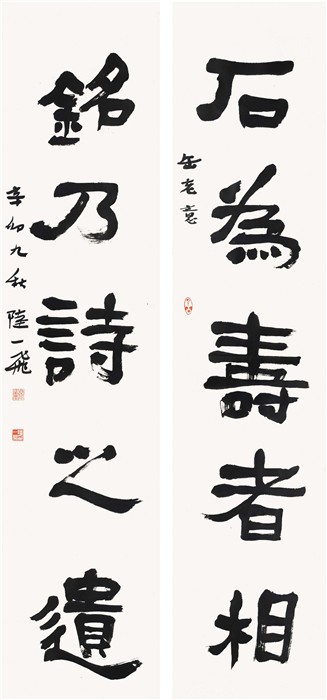 石為壽者相
缶老意
銘乃詩之遺
辛卯九秋陸一飛